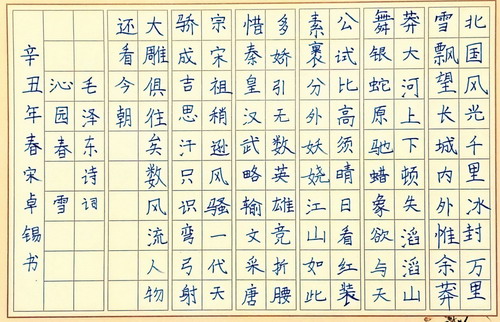 北国风光千里冰封万里
雪飘望长城内外惟余莽
莽大河上下顿失滔滔山
舞银蛇原驰蜡象欲与天
公试比高须晴日看红装
素裹分外妖娆江山如此
多娇引无数英雄竞折腰
惜秦皇汉武略输文采唐
宗宋祖稍逊风骚一代天
骄成吉思汗只识弯弓射
大雕俱往矣数风流人物
还看今朝
毛泽东诗词
沁园春 雪
辛丑年春宋卓锡书